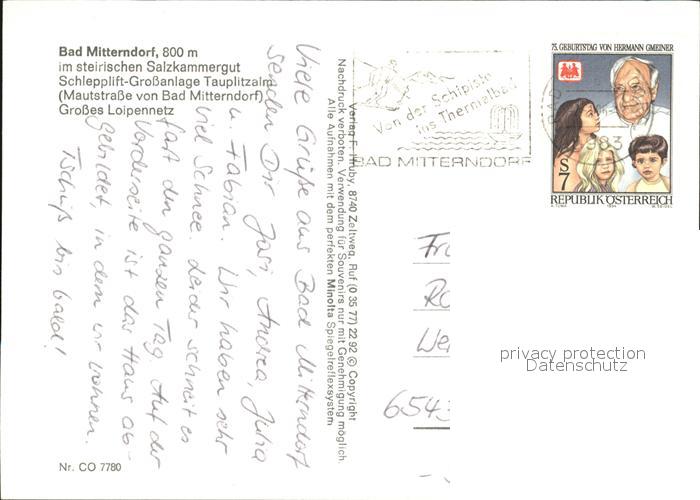 Bad Mitterndorf, 800 m
im steirischen Salzkammergut
Schlepplift-Großanlage Tauplitzalm
(Mautstraße von Bad Mitterndorf)
Großes Loipennetz
Viele Grüße aus Bad Mitterndorf
senden Dir Josi, Andrea, Julia
u. Fabian. Wir haben sehr
viel Schnee. Leider schneit es
fast den ganzen Tag. Auf der
Vorderseite ist das Haus ab-
gebildet, in dem wir wohnen.
Tschüß bis bald!
Nr. CO 7780
Verlag F. Hruby, 8740 Zeltweg, Ruf (0 35 77) 22 92 © Copyright
Nachdruck verboten. Verwendung für Souvenirs nur mit Genehmigung möglich.
Alle Aufnahmen mit dem perfekten Minolta Spiegelreflexsystem
Von der Schipiste
ins Thermalbad
BAD MITTERNDORF
75. GEBURTSTAG VON HERMANN GMEINER
S 7
REPUBLIK ÖSTERREICH
8983
Fr
Ro
We
6543
privacy protection
Datenschutz